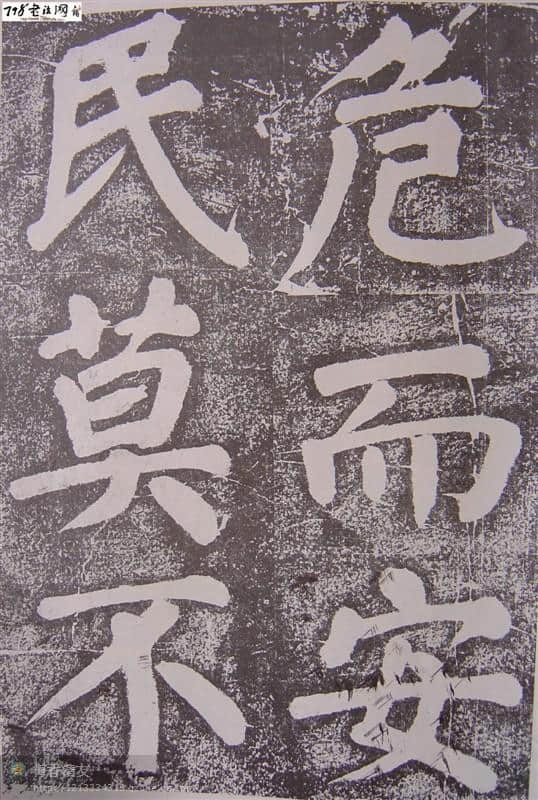 危而安
民莫不
798书法网